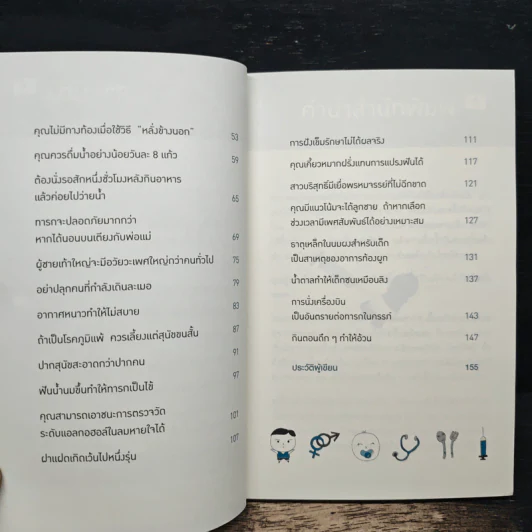 คุณไม่มีทางท้องเมื่อใช้วิธี “หลั่งข้างนอก” 53
คุณควรดื่มน้ำอย่างน้อยวันละ 8 แก้ว 59
ต้องนั่งรอสักหนึ่งชั่วโมงหลังกินอาหาร
แล้วค่อยไปว่ายน้ำ 65
ทารกจะปลอดภัยมากกว่า
หากได้นอนบนเตียงกับพ่อแม่ 69
ผู้ชายเท้าใหญ่จะมีอวัยวะเพศใหญ่กว่าคนทั่วไป 75
อย่าปลุกคนที่กำลังเดินละเมอ 79
อากาศหนาวทำให้ไม่สบาย 83
ถ้าเป็นโรคภูมิแพ้ ควรเลี้ยงแต่สุนัขขนสั้น 87
ปากสุนัขสะอาดกว่าปากคน 91
ฟันน้ำนมขึ้นทำให้ทารกเป็นไข้ 97
คุณสามารถเอาชนะการตรวจวัด
ระดับแอลกอฮอล์ในลมหายใจได้ 101
ฝาแฝดเกิดเว้นไปหนึ่งรุ่น 107
การฝังเข็มรักษาไม่ได้ผลจริง 111
คุณเคี้ยวหมากฝรั่งแทนการแปรงฟันได้ 117
สาวบริสุทธิ์มีเยื่อพรหมจารรย์ที่ไม่ฉีกขาด 121
คุณมีแนวโน้มจะได้ลูกชาย ถ้าหากเลือก
ช่วงเวลามีเพศสัมพันธ์ได้อย่างเหมาะสม 127
ธาตุเหล็กในนมผงสำหรับเด็ก
เป็นสาเหตุของอาการท้องผูก 131
น้ำตาลทำให้เด็กซนเหมือนลิง 137
การนั่งเครื่องบิน
เป็นอันตรายต่อทารกในครรภ์ 143
กินตอนดึก ๆ ทำให้อ้วน 147
ประวัติผู้เขียน 155